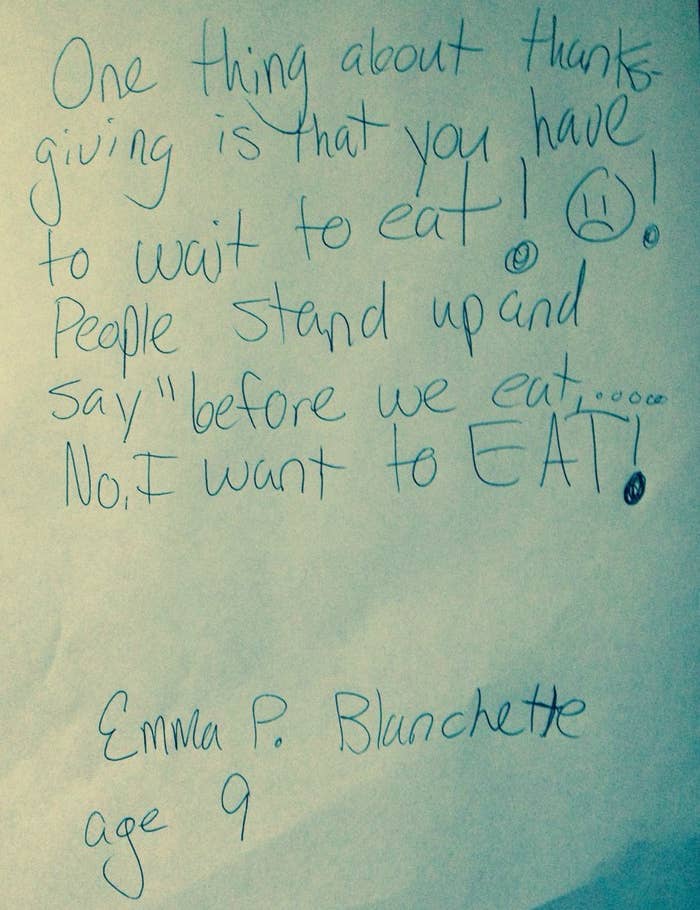 One thing about thanks-
giving is that you have
to wait to eat! ☹!
People stand up and
say "before we eat,......
No, I want to EAT!
Emma P. Blanchette
age 9